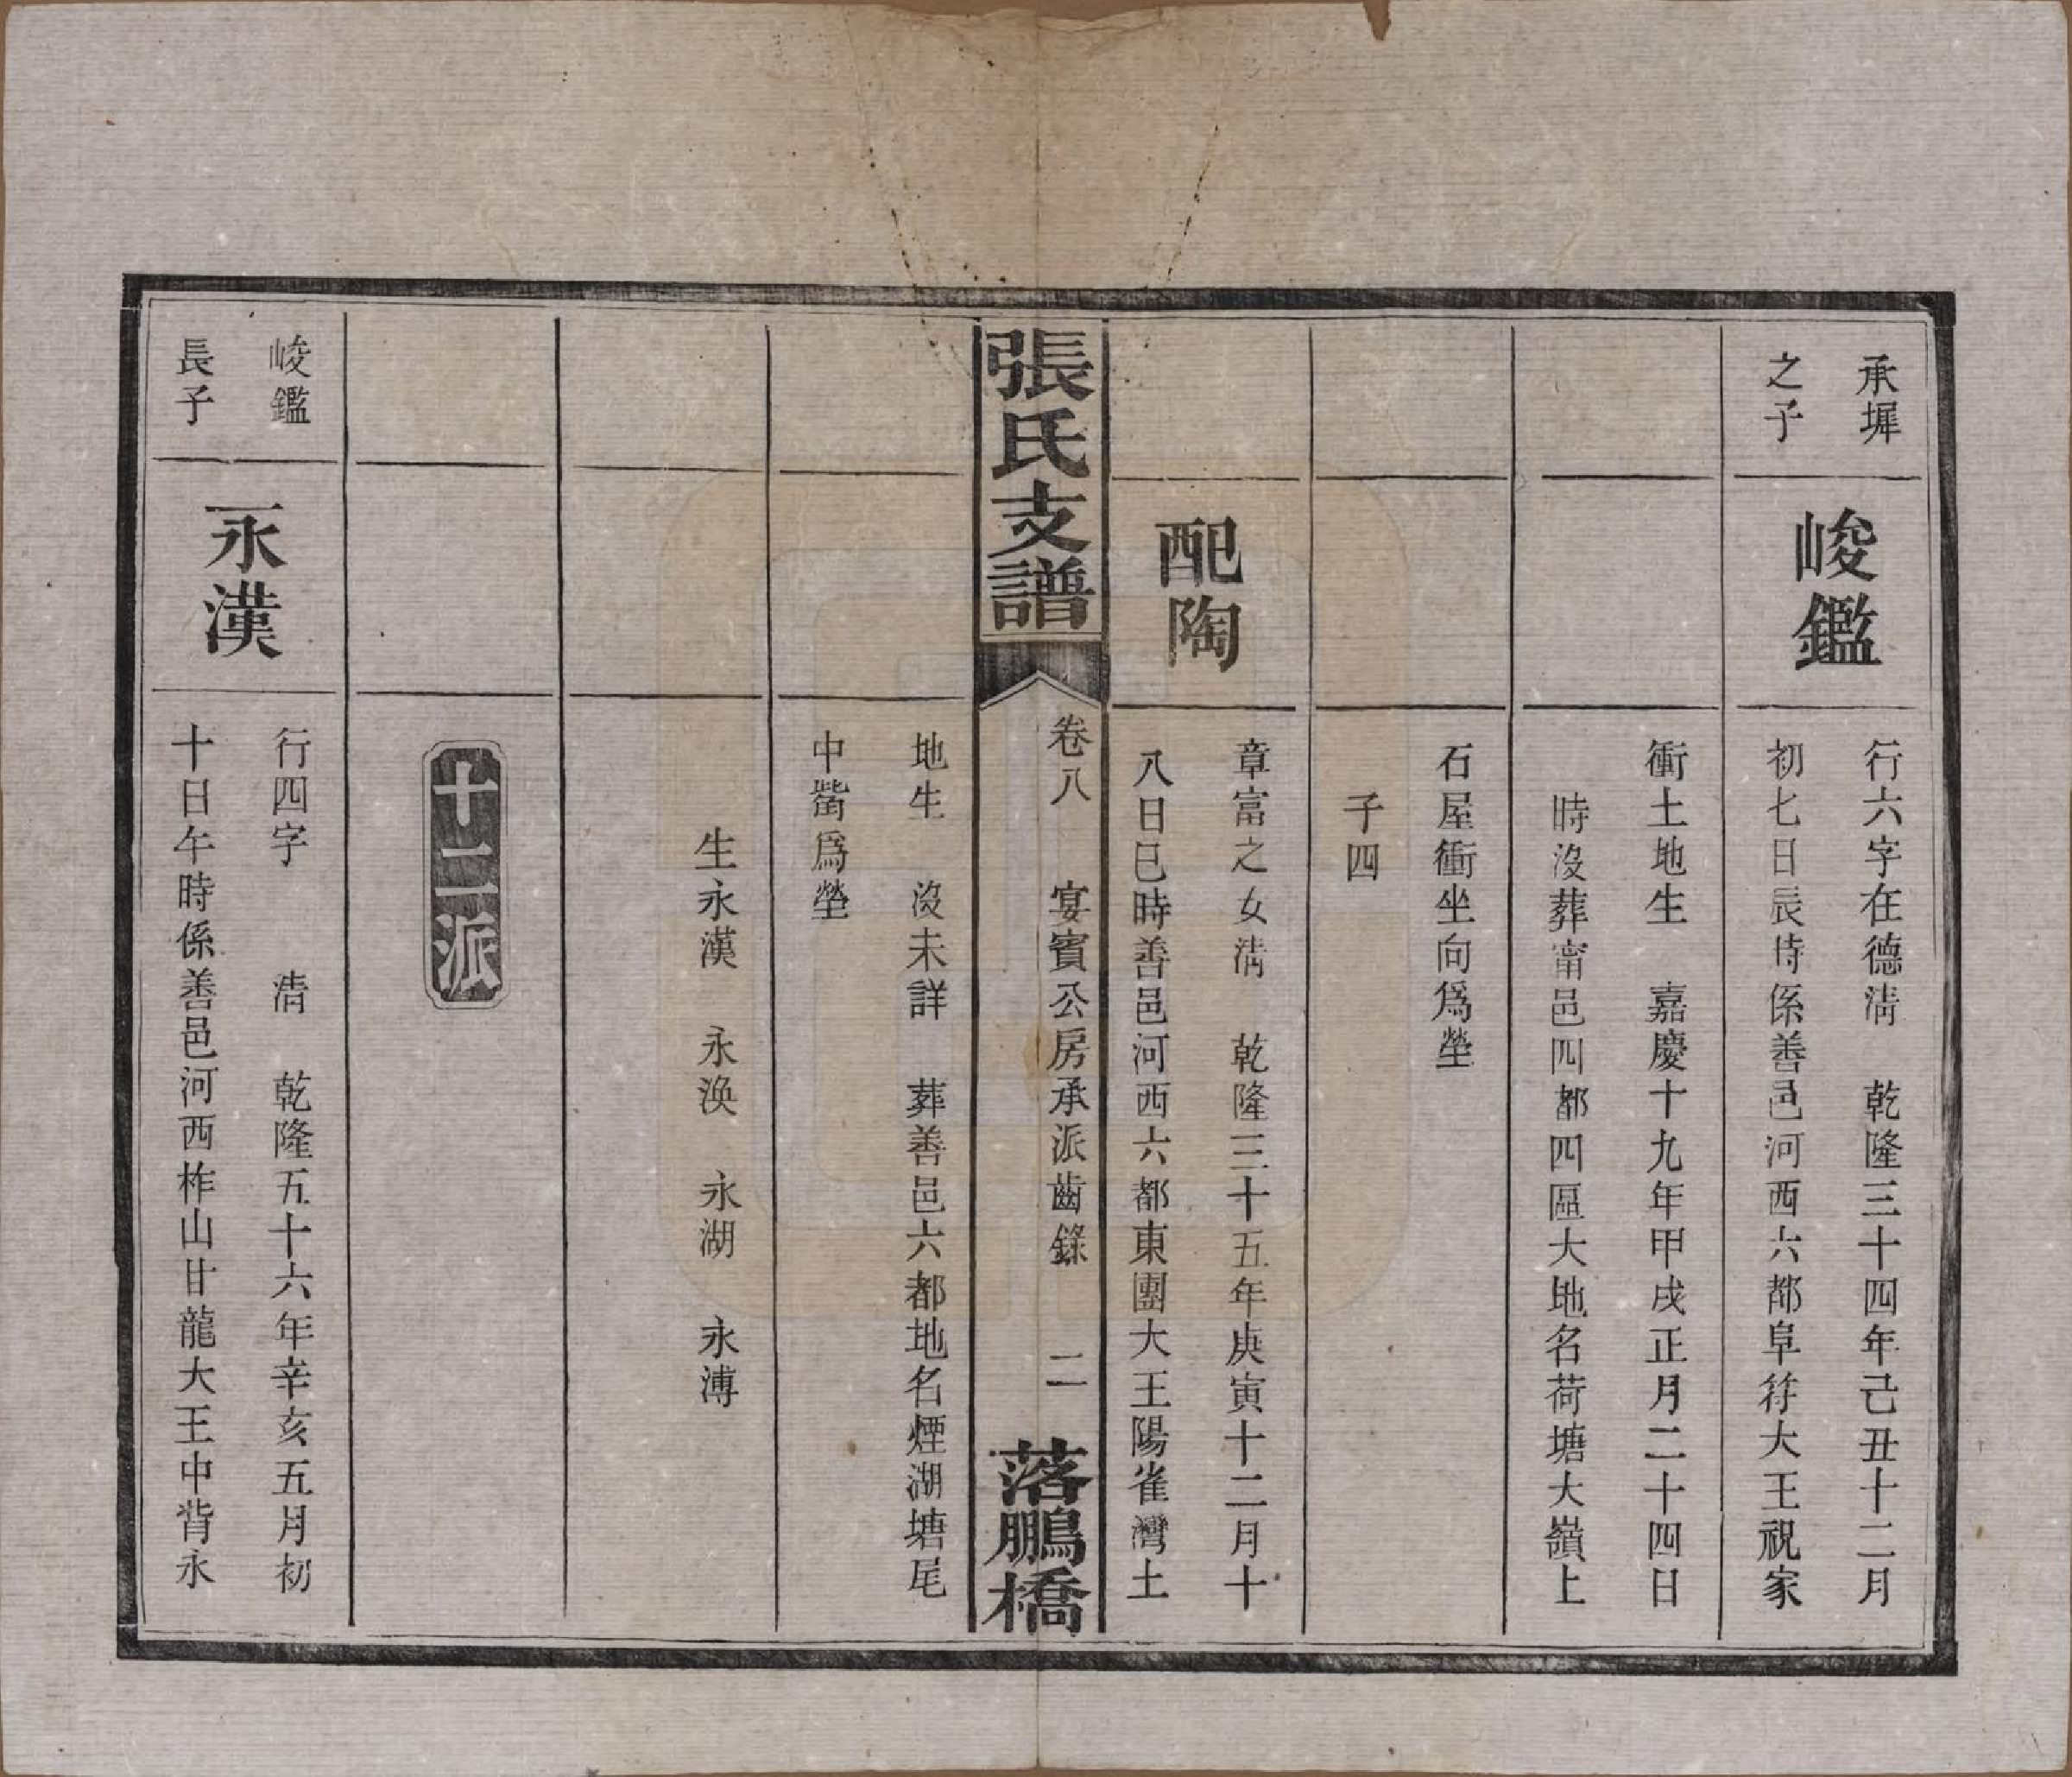 承墀
之子
峻鑑
行六字在德淸　乾隆三十四年己丑十二月
初七日辰時係善邑河西六都阜符大王祝家
衝土地生　嘉慶十九年甲戌正月二十四日
時沒葬甯邑四都四區大地名荷塘大嶺上
石屋衝坐向爲塋
子四
配陶
章富之女淸　乾隆三十五年庚寅十二月十
八日巳時善邑河西六都東團大王陽雀灣土
張氏支譜
卷八　宴賓公房承派齒錄　二
落鵬橋
地生　沒未詳　葬善邑六都地名煙湖塘尾
中嵜爲塋
生永漢　永渙　永湖　永溥
十二派
峻鑑
長子
永漢
行四字　淸　乾隆五十六年辛亥五月初
十日午時係善邑河西柞山甘龍大王中背永